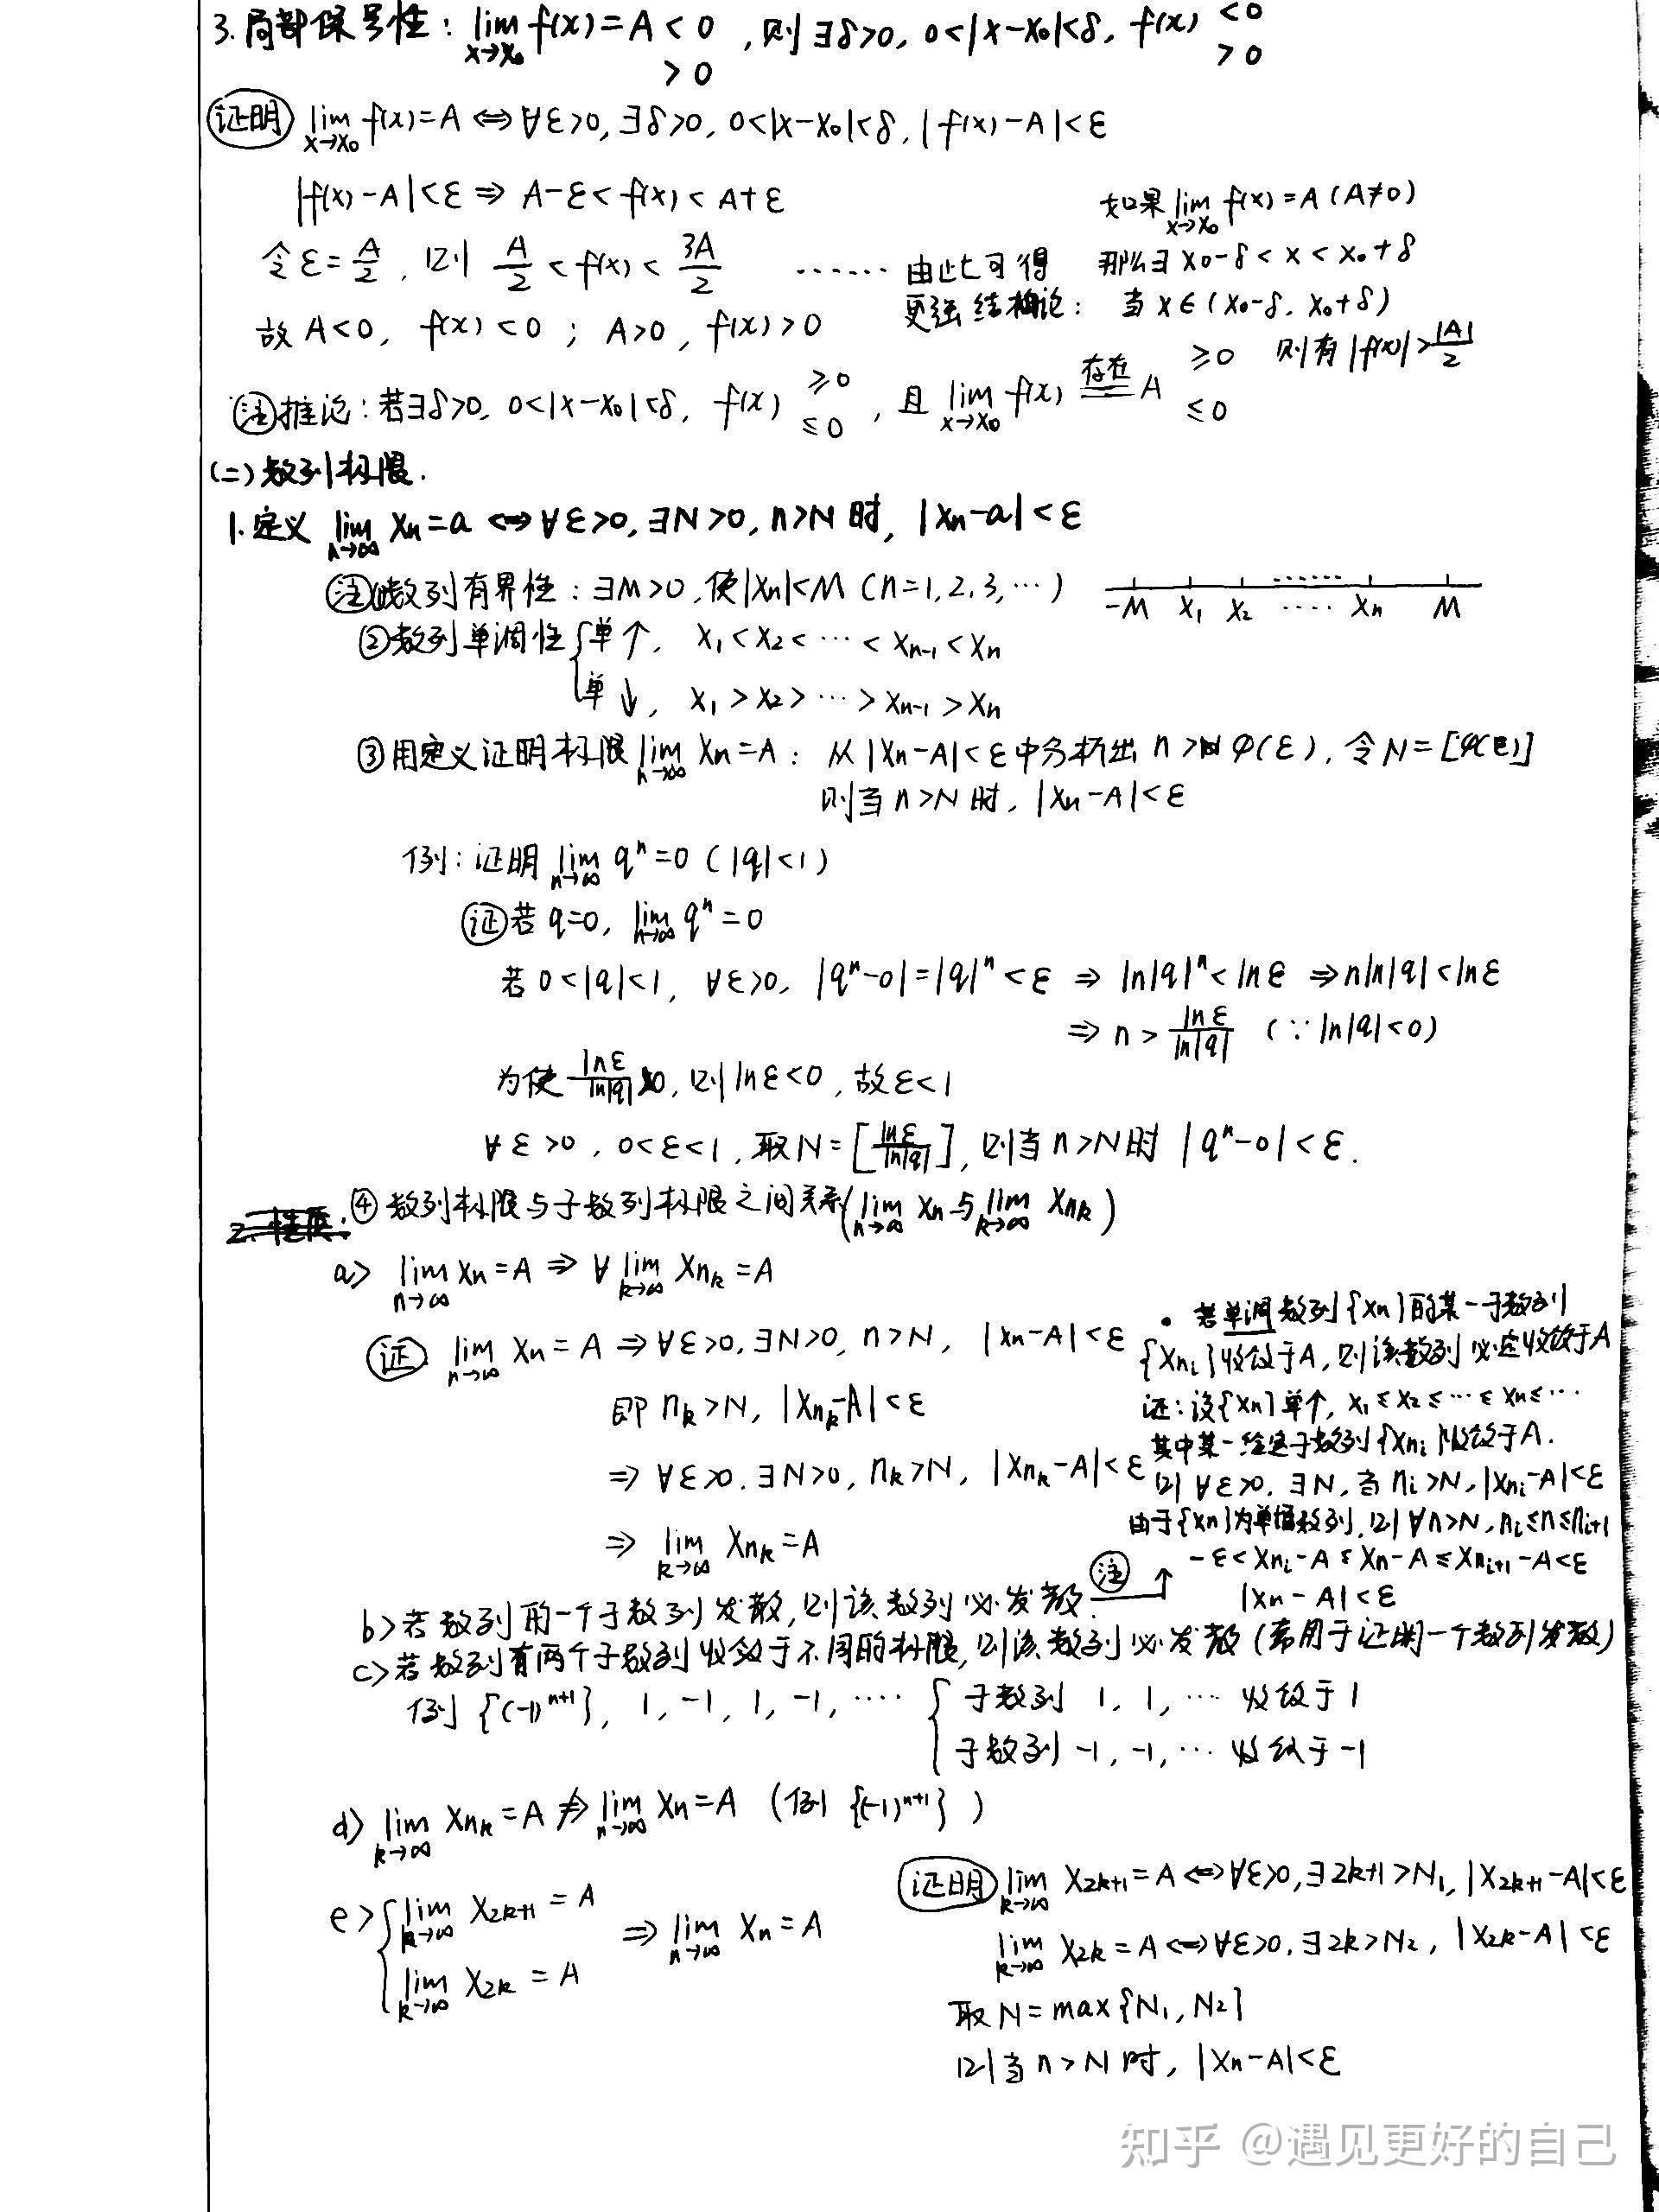 3. 局部保号性：lim x→x₀ f(x)=A <0 >0，则∃δ>0, 0<|x-x₀|<δ, f(x) <0 >0
证明 lim x→x₀ f(x)=A ⇔ ∀ε>0, ∃δ>0, 0<|x-x₀|<δ, |f(x)-A|<ε
|f(x)-A|<ε ⇒ A-ε<f(x)<A+ε
令ε=A/2, 则 A/2<f(x)<3A/2 ······ 由此可得
故A<0, f(x)<0; A>0, f(x)>0
更强结论：
如果 lim x→x₀ f(x)=A (A≠0)
那么∃ x₀-δ<x<x₀+δ
当x∈(x₀-δ, x₀+δ)
则有|f(x)|>|A|/2
注 推论：若∃δ>0, 0<|x-x₀|<δ, f(x) ≥0 ≤0，且 lim x→x₀ f(x) 存在 = A ≥0 ≤0
(二) 数列极限.
1. 定义 lim n→∞ xn=a ⇔ ∀ε>0, ∃N>0, n>N时, |xn-a|<ε
注 ①数列有界性：∃M>0, 使|xn|<M (n=1,2,3,···) -M x₁ x₂ ···· xn M
②数列单调性 { 单↑, x₁<x₂<···<xn-1<xn
单↓, x₁>x₂>···>xn-1>xn
③用定义证明极限 lim n→∞ xn=A：从|xn-A|<ε中分析出n>φ(ε), 令N=[φ(ε)]
则当n>N时, |xn-A|<ε
例：证明 lim n→∞ qⁿ=0 (|q|<1)
证 若q=0, lim n→∞ qⁿ=0
若0<|q|<1, ∀ε>0, |qⁿ-0|=|q|ⁿ<ε ⇒ ln|q|ⁿ<lnε ⇒ nln|q|<lnε
⇒ n>lnε/ln|q| (∵ln|q|<0)
为使 lnε/ln|q| >0, 则lnε<0, 故ε<1
∀ε>0, 0<ε<1, 取N=[lnε/ln|q|], 则当n>N时 |qⁿ-0|<ε.
2. 性质.
④数列极限与子数列极限之间关系(lim n→∞ xn与lim k→∞ xnk)
a> lim n→∞ xn=A ⇒ ∀ lim k→∞ xnk=A
证 lim n→∞ xn=A ⇒ ∀ε>0, ∃N>0, n>N, |xn-A|<ε
即 nk>N, |xnk-A|<ε
⇒ ∀ε>0, ∃N>0, nk>N, |xnk-A|<ε
⇒ lim k→∞ xnk=A
• 若单调数列{xn}的某一子数列
{xni}收敛于A, 则该数列必定收敛于A
证：设{xn}单个, x₁≤x₂≤···≤xn≤···
其中某一给定子数列{xni}收敛于A.
则∀ε>0, ∃N, 当ni>N, |xni-A|<ε
由于{xn}为单增数列, 则∀n>N, ni≤n≤ni+1
-ε<xni-A≤xn-A≤xni+1-A<ε
|xn-A|<ε
b>若数列的一个子数列发散, 则该数列必发散. 注
c>若数列有两个子数列收敛于不同的极限, 则该数列必发散(常用于证明一个数列发散)
例 {(-1)ⁿ⁺¹}, 1, -1, 1, -1, ···· { 子数列 1, 1, ··· 收敛于1
子数列 -1, -1, ··· 收敛于-1
d> lim k→∞ xnk=A ⇏ lim n→∞ xn=A (例 {(-1)ⁿ⁺¹})
e> { lim k→∞ x2k+1=A
lim k→∞ x2k=A
⇒ lim n→∞ xn=A
证明 lim k→∞ x2k+1=A ⇔ ∀ε>0, ∃2k+1>N₁, |x2k+1-A|<ε
lim k→∞ x2k=A ⇔ ∀ε>0, ∃2k>N₂, |x2k-A|<ε
取N=max{N₁, N₂}
则当n>N时, |xn-A|<ε
知乎 @遇见更好的自己